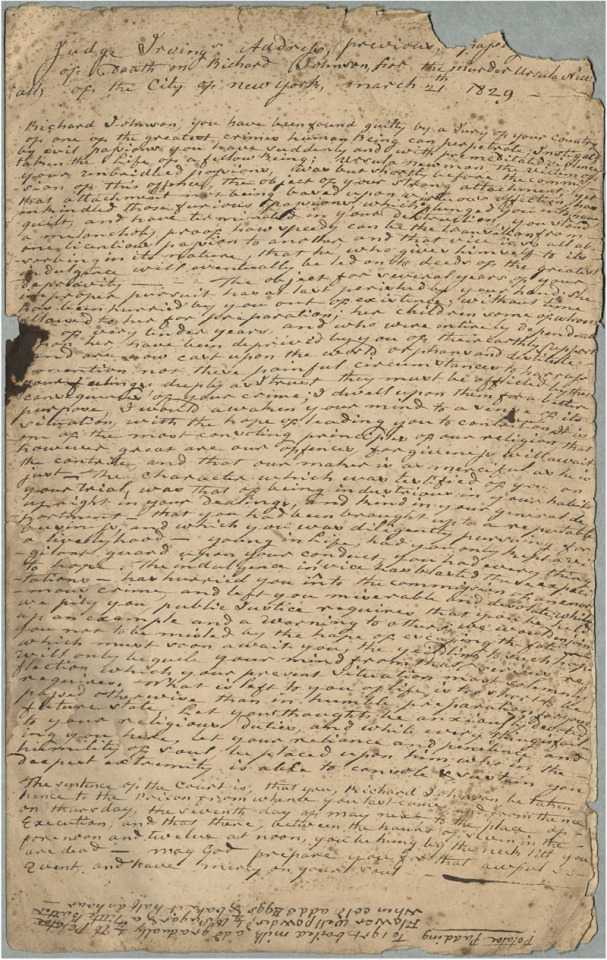 Judge Irving's Address, previous, 
of Death on Richard Johnson, for the murder Ursula New
all, of the City of new york, march 21th 1829
Richard Johnson, you have been found guilty by a Jury of your Country
of one of the greatest crimes human Being can perpetrate, Instigated
by evil passions you have suddenly and with premeditated violence
taken the Life of a fellow Being; Ursula newman the victim of
your unbridled passions, was but shortly before the
sion of this offence, the object of your strong attachment,
that attachment not being based upon virtuous affection, you
enkindled those furious passions which
guilt, and have terminated in your destruction, you stand
a melancholy proof how speedy can be the transition from
one licentious passion to another and that vice is so all ab
sorbing in its nature, that he who gives himself to its
indulgence will eventually be led on to deeds of the greatest
depravity — The object for several years of your
improper pursuit has at last perished by your hand, she
has been hurried by you out of existence, without time
allowed to her for preparation; her children some of whom
are of very tender years, and who were entirely dependent
upon her have been deprived by you of their earthly support
and are now cast upon the world orphans and destitute
I mention not these painful circumstances to harrass
your feelings, deeply as I trust they must be afflicted by the
consequences of your crime; I dwell upon them for a better
purpose, I would awaken your mind to a sense of its
situation, with the hope of leading you to contrition, It is
one of the most consoling principles of our religion that
however great are our offences forgiveness will await
the contrite and that our maker is as merciful as he is
just — The character which was testified of you on
your trial, was that of being industrious in your habits
upright in your dealings and kind in your general de
portment — that you had been brought up to a reputable
business, and which you was diligently pursuing for
a livelyhood — young in Life, had you only kept a vi
gilant guard upon your conduct, you had every thing
to hope. The indulgence in vice has blasted these expec
tations — has hurried you into the commission of an enor
mous crime and left you miserable and desolate, while
we pity you public Justice requires that you be held
up an example and a warning to others; we would enjoin
you not to be misled by the hope of evading the fate
which must soon await you, the yealding to such hope
will only beguile your mind from that pensive re
flection which your present situation most solemnly
requires. What is left to you of life, is too short to be
passed otherwise than in humble preparation for your
future state. Let your thoughts be anxiously devoted
to your religious duties, and while every thing is fail
ing you here, let your reliance and penitence and
humility of soul be placed upon him, who in the
deepest extremity is able to console & sustain you
The sentence of the Court is, that you, Richard Johnson be taken
hence to the Prison from whence you last came, and from thence
on thursday, the seventh day of may next to the place of
Execution, and that there, between the hours of eleven in the
forenoon and twelve at noon, you be hung by the neck till you
are dead — may God prepare you for that awful
Event, and have mercy on your soul
Potatoe Pudding
To 1 qrt boiled milk add gradually
When cold add 3 Eggs